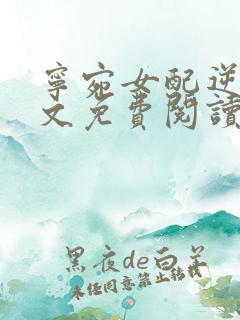 寧宛女配逆
文免費閱讀
黑夜de白羊
未经同意禁止转载